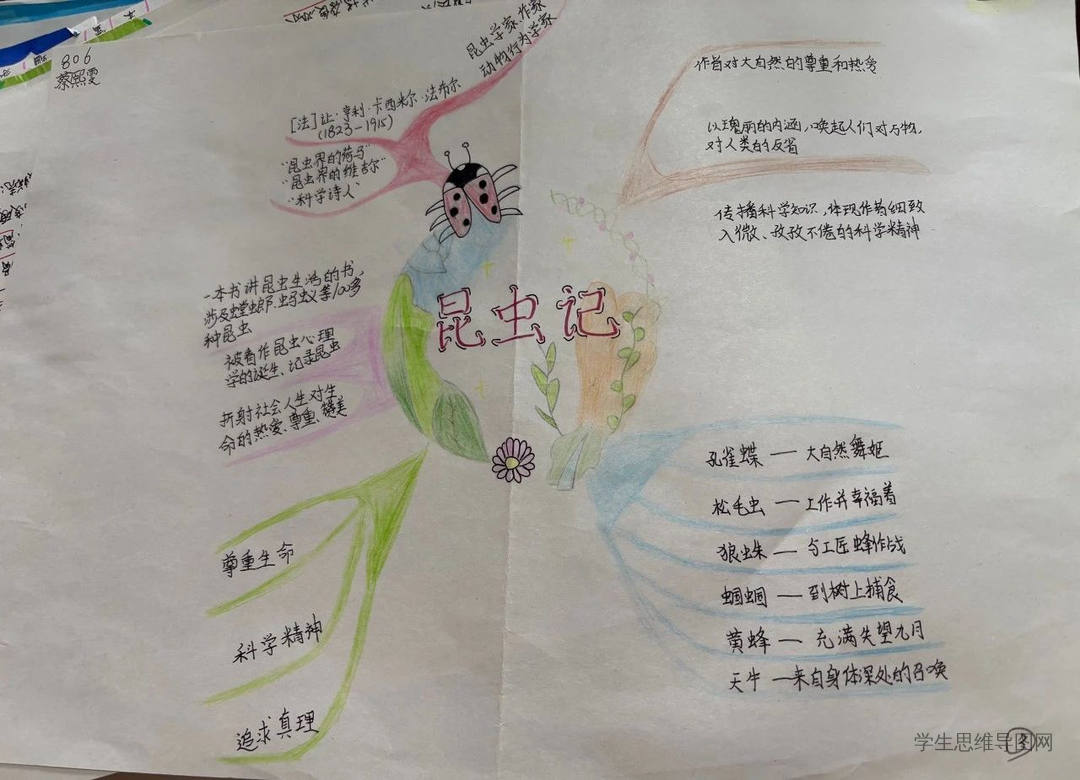 806
蔡熙雯
昆虫记
昆虫学家、作家
动物行为学家
[法]让·亨利·卡西米尔·法布尔
(1823-1915)
"昆虫界的荷马"
"昆虫界的维吉尔"
"科学诗人"
一本书讲昆虫生活的书,
涉及螳螂、蚂蚁等100多
种昆虫
被看作昆虫心理
学的诞生、记录昆虫
折射社会人生对生
命的热爱、尊重、赞美
尊重生命
科学精神
追求真理
作者对大自然的尊重和热爱
以瑰丽的内涵,唤起人们对万物,
对人类的反省
传播科学知识,体现作者细致
入微、孜孜不倦的科学精神
孔雀蝶 — 大自然舞姬
松毛虫 — 工作并幸福着
狼蛛 — 与工匠蜂作战
蝈蝈 — 到树上捕食
黄蜂 — 充满失望九月
天牛 — 来自身体深处的召唤
学生思维导图网